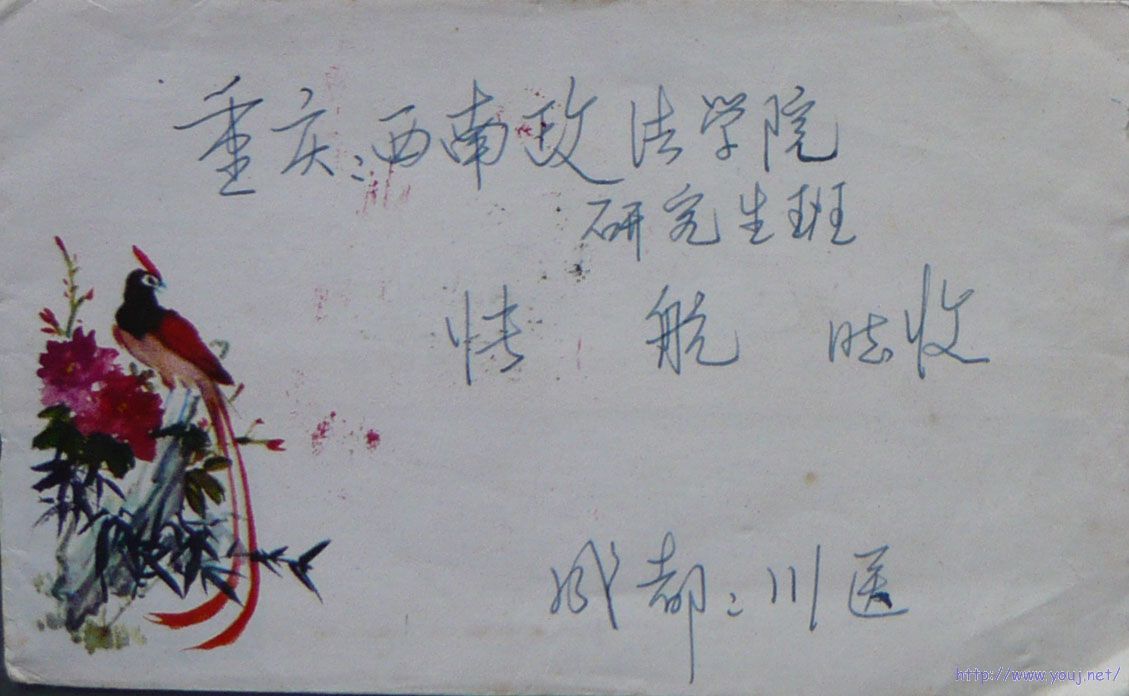 重庆:西南政法学院
研究生班
航 收
成都:川医
http://www.youj.net/